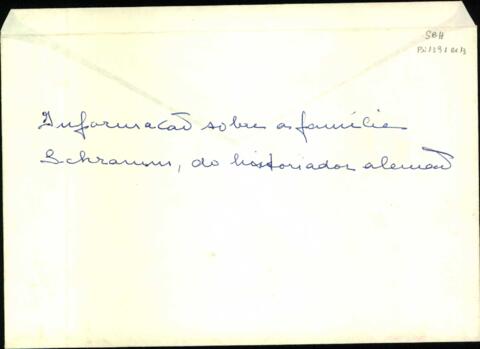 SBH
Informação sobre a família
Schramm, do historiador alemão